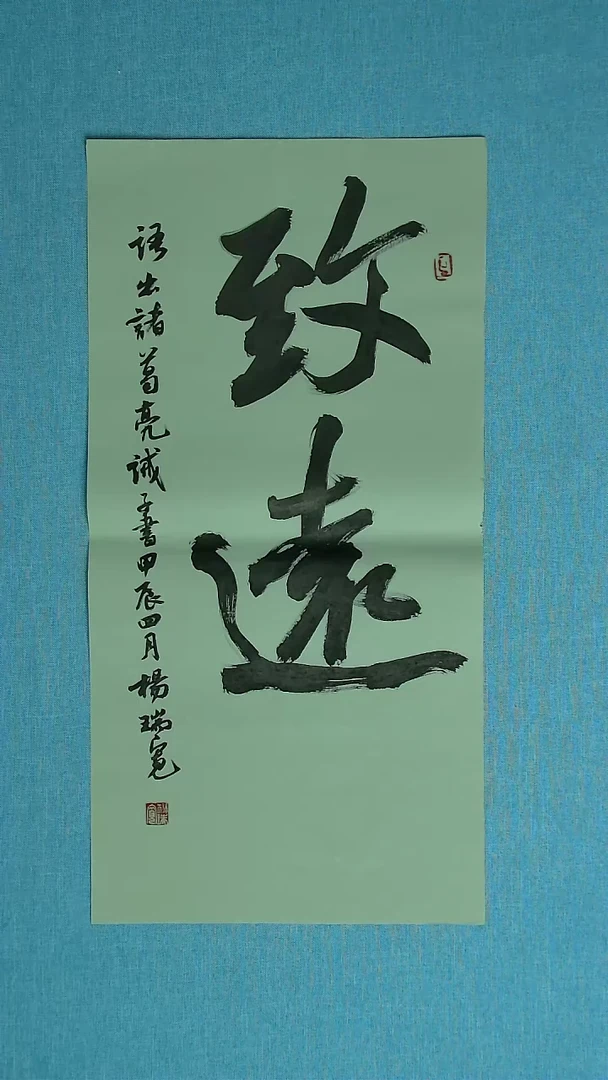 致遠
語出諸葛亮誡子書甲辰四月楊瑞寬